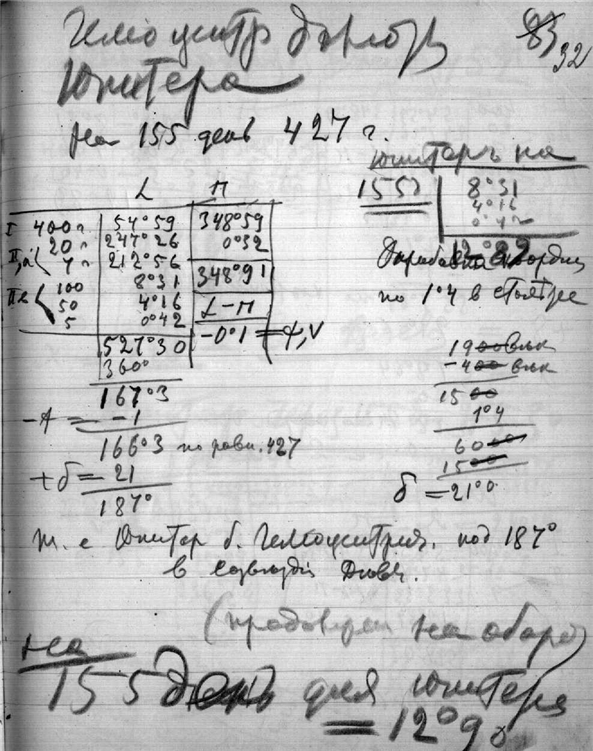 83 32
Гелиоцентр долгот
Юпитера
на 155 день 427 г.
L П
I 400 г 54°59 348°59
20 " 247°26 0°32
7 " 212°56 348°91
100 8°31
50 4°16 L–П
5 0°42 –0°1
527°30
360°
167°3
–1
166°3 по равн. 427
+б = 21
187°
Юпитер на
155
8°31
4°16
по 1°4 в столтье
1900 век
–400 век
1500
1°4
6000
1500
б = 21°0
т. е Юпитер б. Гелиоцентрич. под 187°
в созвездіи Девы.
на обороте
на
155 день для Юпитера
= 12°9